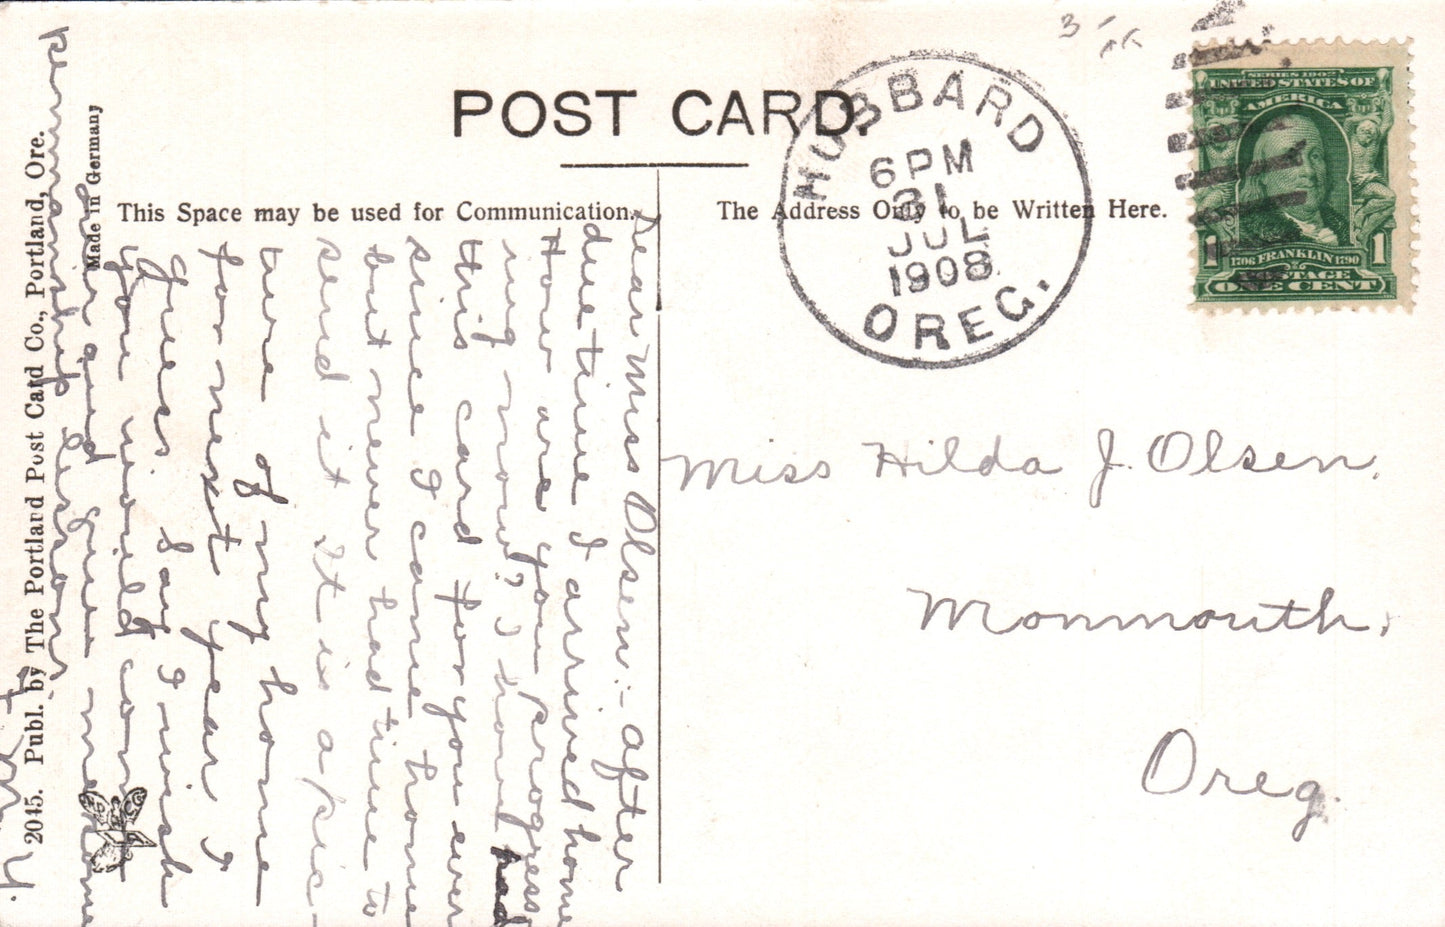 POST CARD.
This Space may be used for Communication.
The Address Only to be Written Here.
HUBBARD
6 PM
31
JUL
1908
OREG.
SERIES 1902
UNITED STATES OF
AMERICA
1706 FRANKLIN 1790
1 POSTAGE 1
ONE CENT
Miss Hilda J. Olsen,
Monmouth,
Oreg.
Dear Miss Olsen:- after
due time I arrived home
How are you progress
ing now? I have had
this card for you ever
since I came home
but never had time to
send it. It is a pic-
ture of my home
for next year I
Guess. Say I wish
you would come
over and give me some
penmanship lessons.
Made in Germany
2045. Publ. by The Portland Post Card Co., Portland, Ore.